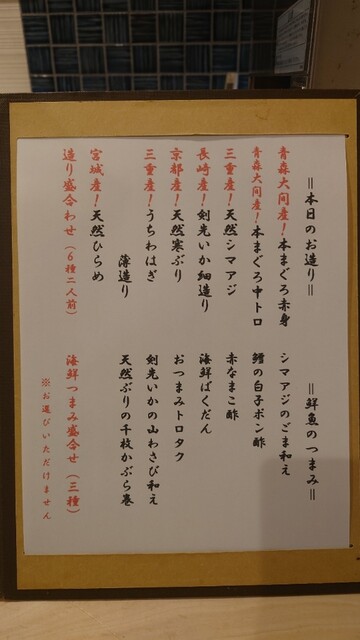 ＝本日のお造り＝
青森大間産！本まぐろ赤身
青森大間産！本まぐろ中トロ
三重産！天然シマアジ
長崎産！剣先いか細造り
京都産！天然寒ぶり
三重産！うちわはぎ
薄造り
宮城産！天然ひらめ
造り盛合わせ（６種二人前）
＝鮮魚のつまみ＝
シマアジのごま和え
鱈の白子ポン酢
赤なまこ酢
海鮮ばくだん
おつまみトロタク
剣先いかの山わさび和え
天然ぶりの千枚かぶら巻
海鮮つまみ盛合せ（三種）
※お選びいただけません